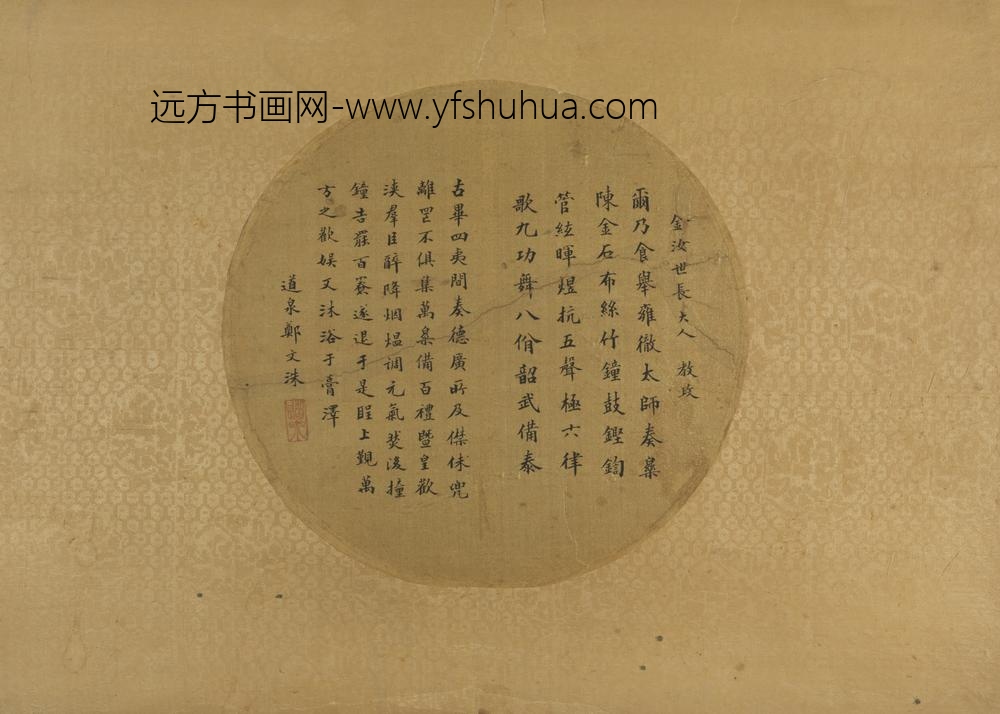 远方书画网-www.yfshuhua.com
金汝世長大人 教政
爾乃食舉雍徹太師奏樂
陳金石布絲竹鐘鼓鏗鍧
管絃曄煜抗五聲極六律
歌九功舞八佾韶武備泰
古畢四夷間奏德廣所及僸佅兜
離罔不俱集萬樂備百禮暨皇歡
浹羣臣醉降烟熅調元氣然後撞
鐘告罷百寮遂退于是聖上覩萬
方之歡娛又沐浴于膏澤
道泉鄭文洙